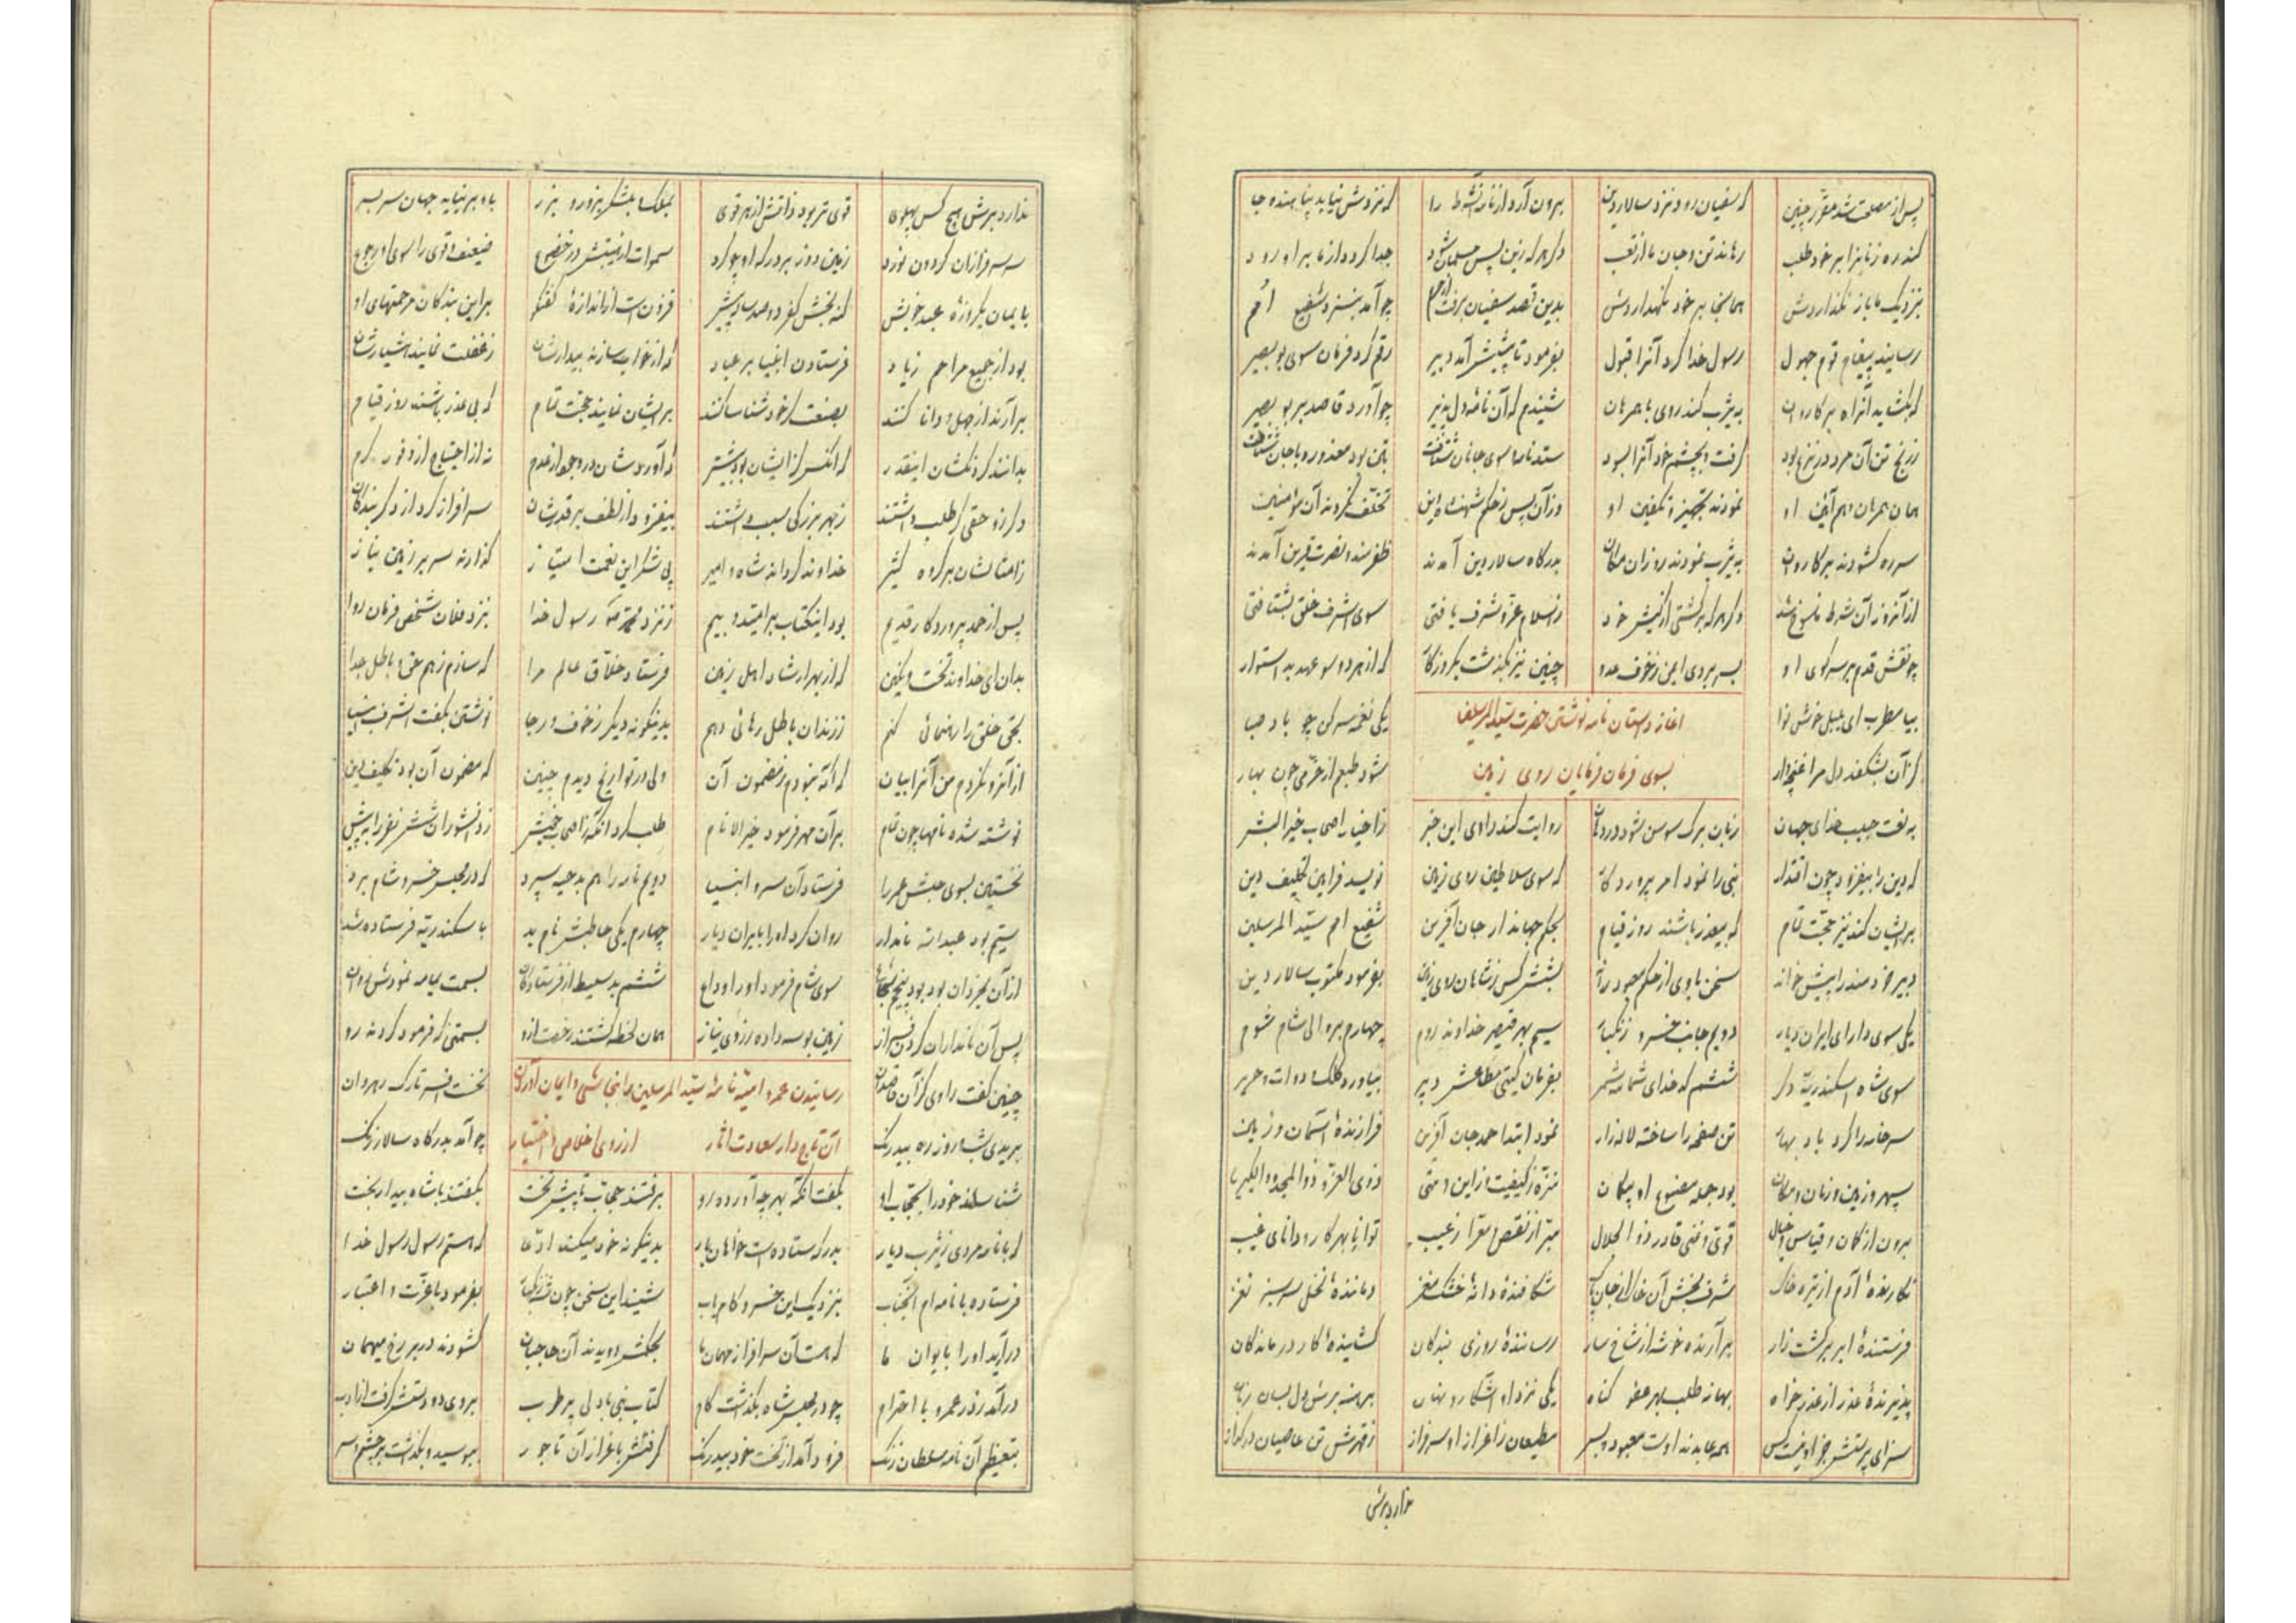 پس از مصلحت شد مقرر چنین که سفیان رود نزد سالار دین برون آرد از نامه آنشرط را که نزدش نیاید پناهنده جا
کند رد زنانرا بر خود طلب رهاند تن و جان ما از تعب دگر هر که زین پس مسلمان شود جدا گردد از ما بر او رود
بنزدیک ما باز نگذاردش همانجا بر خود نگهداردش بدین قصد سفیان برفت چو آمد بنزد شفیع امم
رسانید پیغام قوم جهول رسول خدا کرد آنرا قبول بفرمود تا پیشش آمد دبیر رقم کرد فرمان سوی بوبصیر
که بگشاید آنراه بر کاروان به یثرب کند روی با همرهان شنیدم که آن نامهٔ دلپذیر چو آورد قاصد بر بوبصیر
ز رنج تن آن مرد در نزع بود گرفت و بچشم خود آنرا بسود ستد نامه سوی جانان شتافت بتن بود معذور و با جان شتافت
همان همرهان هم آئین او نمودند تجهیز و تکفین او وز آن پس ز حکم شهنشاه دین تخلف نکردند آن مؤمنین
سر ره گشودند بر کاروان به یثرب نمودند رو زان مکان بدرگاه سالار دین آمدند ظفرمند و نصرت قرین آمدند
از آنروز آن شرط منسوخ شد دگر هر که برگشتی از کیش خود ز اسلام عز و شرف یافتی سوی اشرف خلق بشتافتی
چو نقش قدم بر سر کوی او بسر بردی ایمن ز خوف عدو چنین نیز بگذشت یکروزگار که از هر دو سو عهد بد استوار
بیا مطرب ای بلبل خوش نوا یکی نغمه سر کن چو باد صبا
آغاز داستان نامه نوشتن حضرت سید المرسلین
کز آن بشکفد دل مرا غنچه وار شود طبعم از خرمی چون بهار
بسوی فرمان فرمایان روی زمین
به نعت حبیب خدای جهان زبان برگ سوسن شود در دهان روایت کند راوی این خبر ز اخیار اصحاب خیر البشر
که دین را بیفزود چون اقتدار نبی را نمود امر پروردگار که سوی سلاطین روی زمین نویسد فرامین تکلیف دین
بر ایشان کند نیز حجت تمام که بیعذر باشند روز قیام بحکم جهاندار جان آفرین شفیع امم سید المرسلین
دبیر خردمند را پیش خواند سخن با وی از حکم معبود راند بشش کس ز شاهان روی زمین بفرمود مکتوب سالار دین
یکی سوی دارای ایران دیار دویم جانب خسرو زنگبار سیم بهر قیصر خداوند روم چهارم بر والی شام شوم
سوی شاه اسکندریه دگر ششم که خدای شمامه شمر بفرمان گیتی مطاعش دبیر بیاورد کلک و دوات و حریر
سر خامه را کرد باد بهار تن صفحه را ساخته لاله زار نمود ابتدا حمد جان آفرین فرازندهٔ آسمان و زمین
سپهر و زمین و زمان و مکان بود جمله مصنوع او بیگمان منزه ز کیفیت و از این و متی ذوی العزة و ذو المجد و الکبریا
برون از گمان و قیاس و خیال قوی و غنی قادر ذو الجلال مبرا ز نقص و معرا ز عیب توانا بهر کار و دانای غیب
نگارندهٔ آدم از تیره خاک شرف بخش آن خاک از جان پاک شکافندهٔ دانهٔ خشک مغز دمانندهٔ نخل سرسبز نغز
فرستندهٔ ابر بر کشت زار برآرنده خوشه از شاخسار رسانندهٔ روزی بندگان گشایندهٔ کار درماندگان
پذیرندهٔ عذر از عذر خواه بهانه طلب بهر عفو گناه یکی نزد او آشکار و نهان
سزای پرستش جز او نیست کس همه عابدند اوست معبود و بس مطیعان ز اعزاز او سرفراز ز قهرش تن عاصیان در گداز
ندارد برش
ندارد برش هیچ کس پهلوی قوی تر بود ذاتش از هر قوی بملک و بلشکر بزور و بزر باو بر نیاید جهان سر بسر
سر سرفرازان گردون نورد زمین دوز بر درگه او چو گرد سموات از هیبتش در خضوع ضعیف و قوی را سوی او رجوع
بایمان یکروزهٔ عبد خویش کند بخشش کفر دو صد ساله پیش فزونست از اندازهٔ گفتگو بر این بندگان مرحمتهای او
بود از جمیع مراحم زیاد فرستادن انبیا بر عباد که از خواب سازند بیدارشان ز غفلت نمایند هشیارشان
برآرند از جهل و دانا کنند بصنعت گر خود شناسا کنند بر ایشان نمایند حجت تمام که بی عذر باشند روز قیام
بدانند کز نکشان اینقدر که آنکس کز ایشان بود بیشتر که آوردشان در وجود از عدم نه از احتیاج از وفور کرم
دگر زو حقی کطلب داشتند ز بهر بزرگی سبب داشتند بیفزود از لطف بر قدرشان سر افراز کرد از دگر بندگان
ز امثالشان بر گروه کثیر خداوند گردانده شاه و امیر پی شکر این نعمت امتیاز گذارند سر بر زمین نیاز
پس از حمد پروردگار قدیم بود اینکتاب پر امید و بیم ز نزد محمد رسول خدا بنزد فلان شخص فرمان روا
بدان ای خداوند تخت و نگین که از بهر ارشاد اهل زمین فرستاد خلاق عالم مرا که سازم ز هم حق و باطل جدا
بحق خلق را رهنمائی کنم ز زندان باطل رهائی دهم بدینگونه دیگر ز خوف و رجا نوشتن بگفت اشرف انبیا
از آنرو نکردم من آنرا بیان که آگه نبودم ز مضمون آن ولی در تواریخ دیدم چنین که مضمون آن بود تکلیف دین
نوشته شده نامها چون تمام بر آن مهر فرمود خیر الانام طلب کرد آنگه ز اصحاب خویش ز دانشوران شش نفر را به پیش
نخستین بسوی حبش عمرو را فرستاد آن سرور انبیا دویم نامه را هم بدحیه سپرد که در مجلس خسرو شام برد
سیم بود عبد الله نامدار روان کرد او را بایران دیار چهارم یکی حاطبش نام بد باسکندریه فرستاده شد
از آن بخردان بود پنجم شجاع سوی شام فرمود او را وداع ششم بد سلیط از فرستادگان بسمت یمامه نمودش روان
پس آن نامداران گردن فراز زمین بوسه داده ز روی نیاز همان لحظه گشتند رخصت ازو بسمتی که فرمود کردند رو
رسانیدن عمرو امیه نامهٔ سید المرسلین را بنجاشی و ایمان آوردن
چنین گفت راوی کز آن قاصدان نخست افسر تارک رهروان
آن تاجدار سعادت آثار از روی اخلاص و اختیار
بریدی شب و روز ره بیدرنگ چو آمد بدرگاه سالار زنگ
شناساند خود را بحجاب او بگفت آنکه بهر چه آورده رو برفتند حجاب تا پیش تخت بگفتند با شاه بیدار بخت
که با نامه مردی ز یثرب دیار بدرگه ستاده است خواهان بار بدینگونه خود میکند ادعا که هستم رسول رسول خدا
فرستاده با نامه ام آنجناب بنزدیک این خسرو کامیاب شنید این سخن چون شه زنگبار بفرمود با عزت و اعتبار
درآرید او را بایوان ما که هست آن سر افراز مهمان ما بحکمش دویدند آن حاجبان گشودند در بر رخ میهمان
درآمد ز در عمرو با احترام چو در مجلس شاه بگذشت گام کتاب نبی با دلی پر طرب بروی دو دستش گرفت از ادب
بتعظیم آن نامه سلطان زنگ فرود آمد از تخت خود بیدرنگ گرفتش باعزاز آن تاجور ببوسید و بگذاشت بر چشم و سر